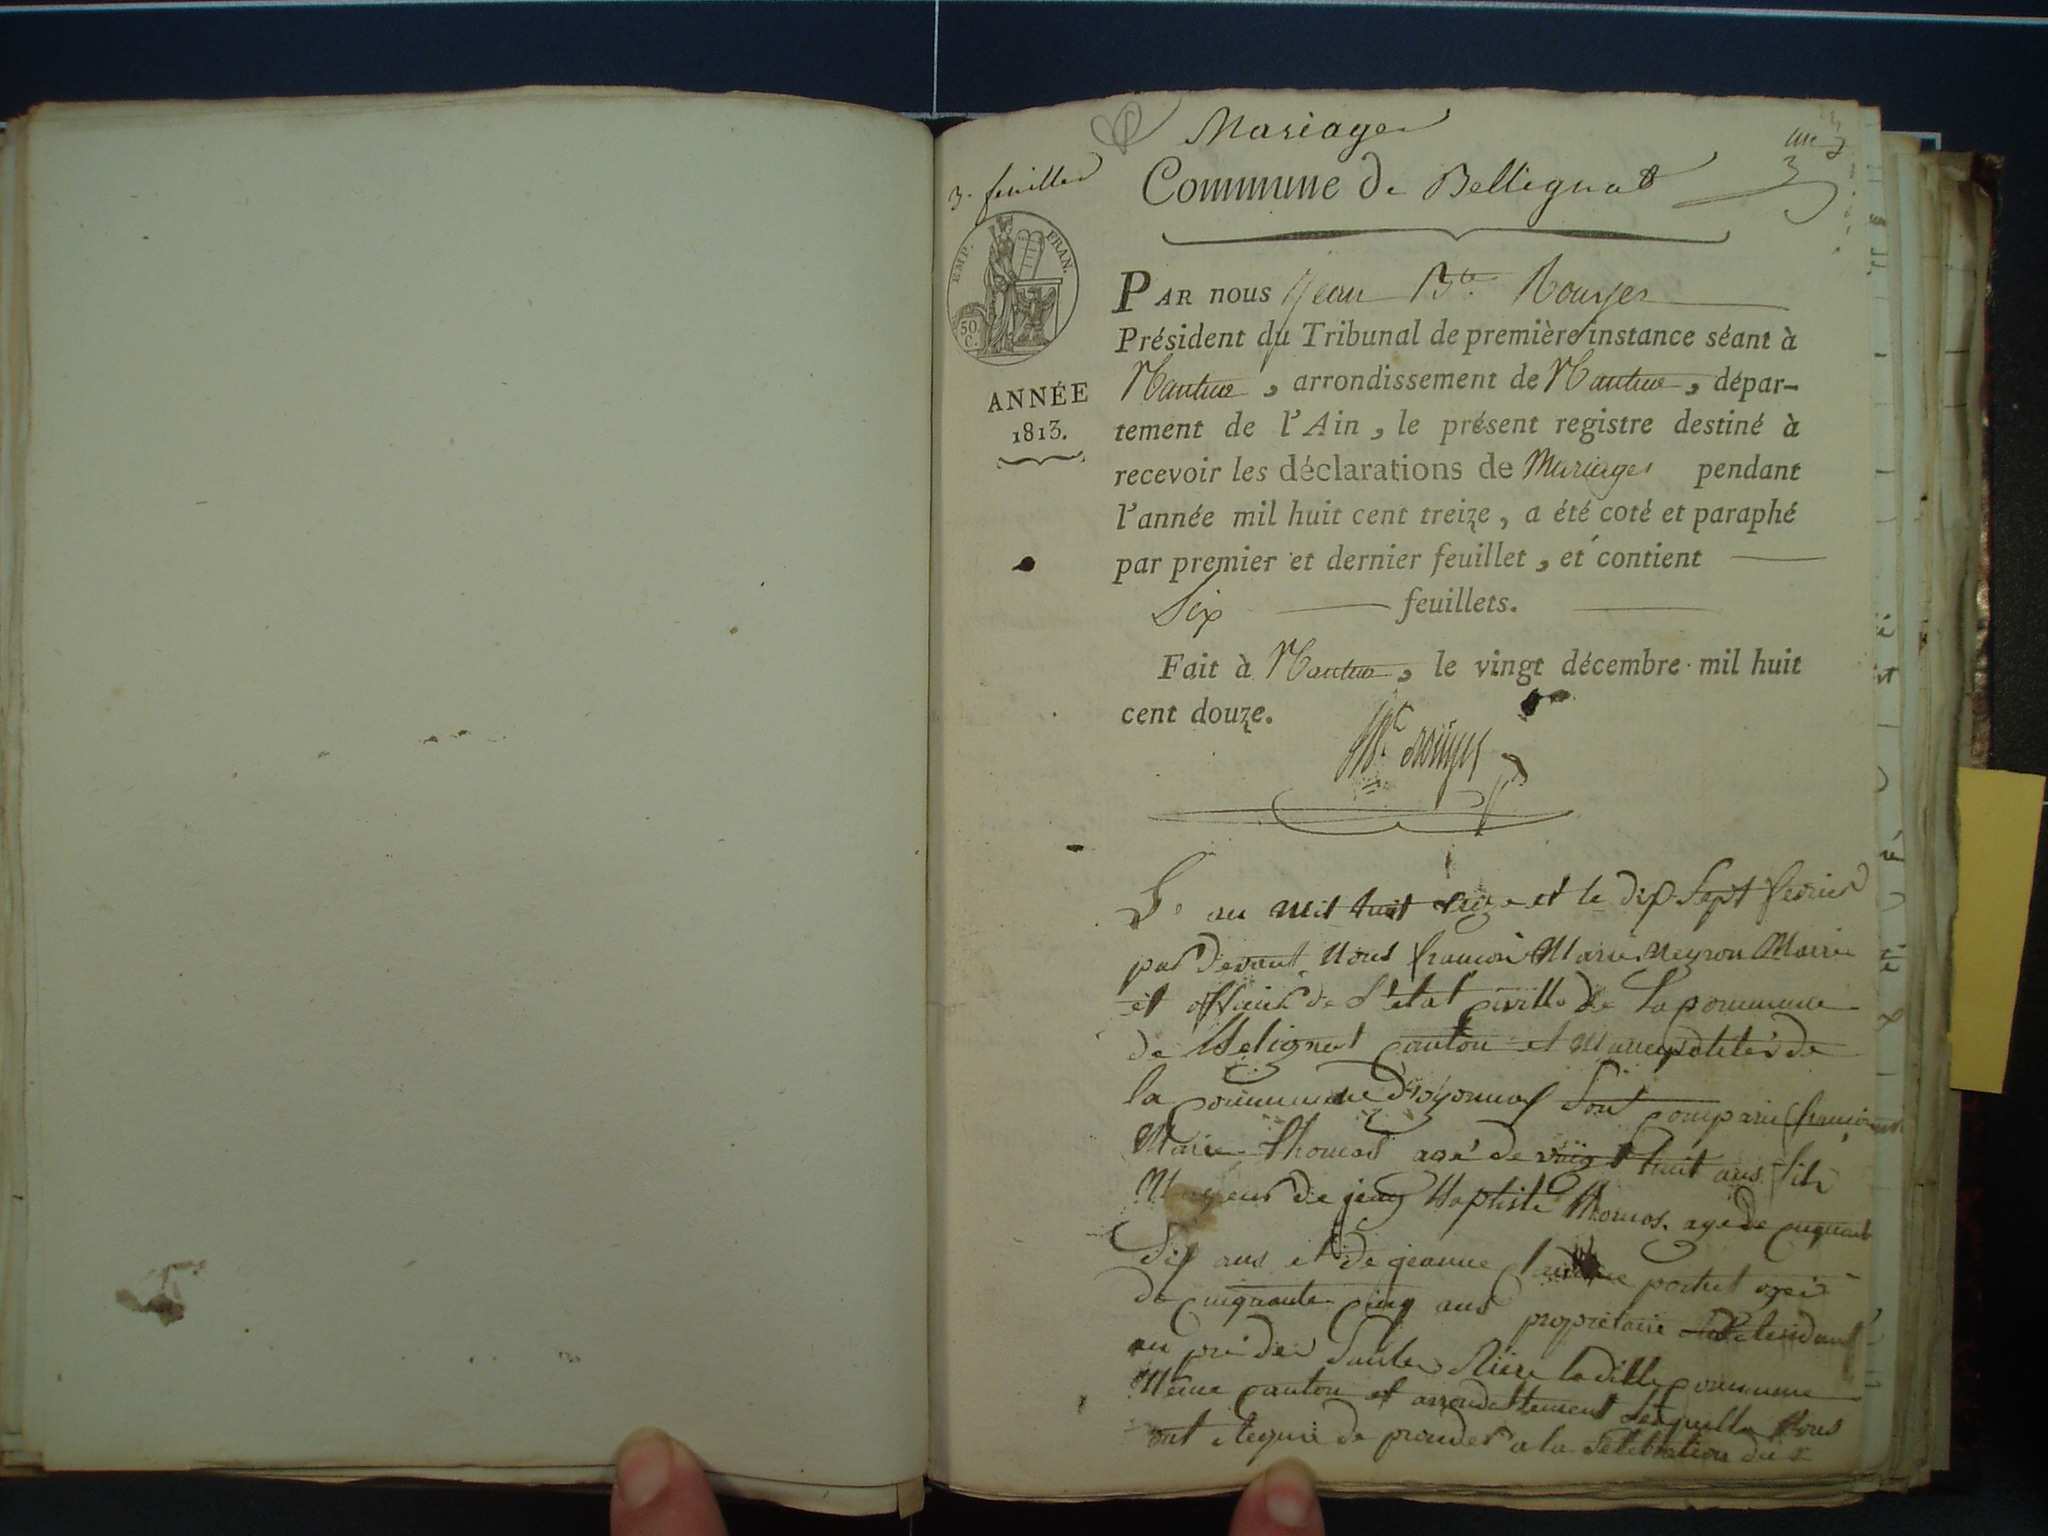 Mariages
3. feuilles
Commune de Bellignat
3
EMP. FRAN.
50.
C.
ANNÉE
1813.
PAR nous Jean Bte. Rouyer
Président du Tribunal de première instance séant à
Nantua, arrondissement de Nantua, dépar-
tement de l'Ain, le présent registre destiné à
recevoir les déclarations de Mariages pendant
l'année mil huit cent treize, a été coté et paraphé
par premier et dernier feuillet, et contient
Six feuillets.
Fait à Nantua, le vingt décembre mil huit
cent douze.
L'an mil huit treize et le dix Sept fevrier
par devant Nous françois Marie Neyron Maire
et officier de L'etat civille de La commune
de Belignat canton et Municipalités de
la commune d'oyonnax Sont comparu françois
Marie thomas agé de vingt huit ans fils
Mageur de jean Baptiste thomas agé de cinquante
dix ans et de jeanne portet agée
de cinquante cinq ans propriétaire
au pré des Saules Rière laditte commune
Même canton et arrondittement lesquelle Nous
ont Requis de proceder a la Celebration du